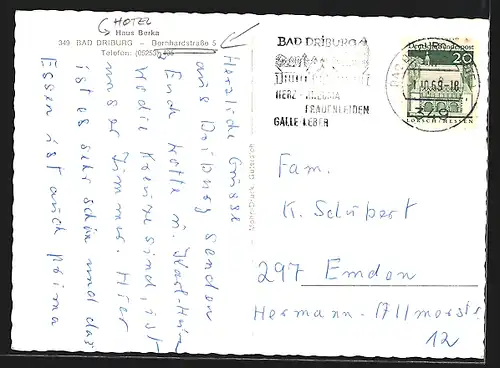 HOTEL
Haus Berka
349 BAD DRIBURG – Bernhardstraße 5
Telefon: (05253)
Herzliche Grüsse
aus Driburg senden
Ende Lotte u. Karl-Heinz
Wo die Kreuze sind, ist
unser Zimmer. Hier
ist es sehr schön und das
Essen ist auch prima
BAD DRIBURG
HERZ - RHEUMA
FRAUENLEIDEN
GALLE-LEBER
1.10.69-18
349
Deutsche Bundespost
20
LORSCH/HESSEN
Fam.
K. Schubert
297 Emden
Hermann-Allmers-Str
12